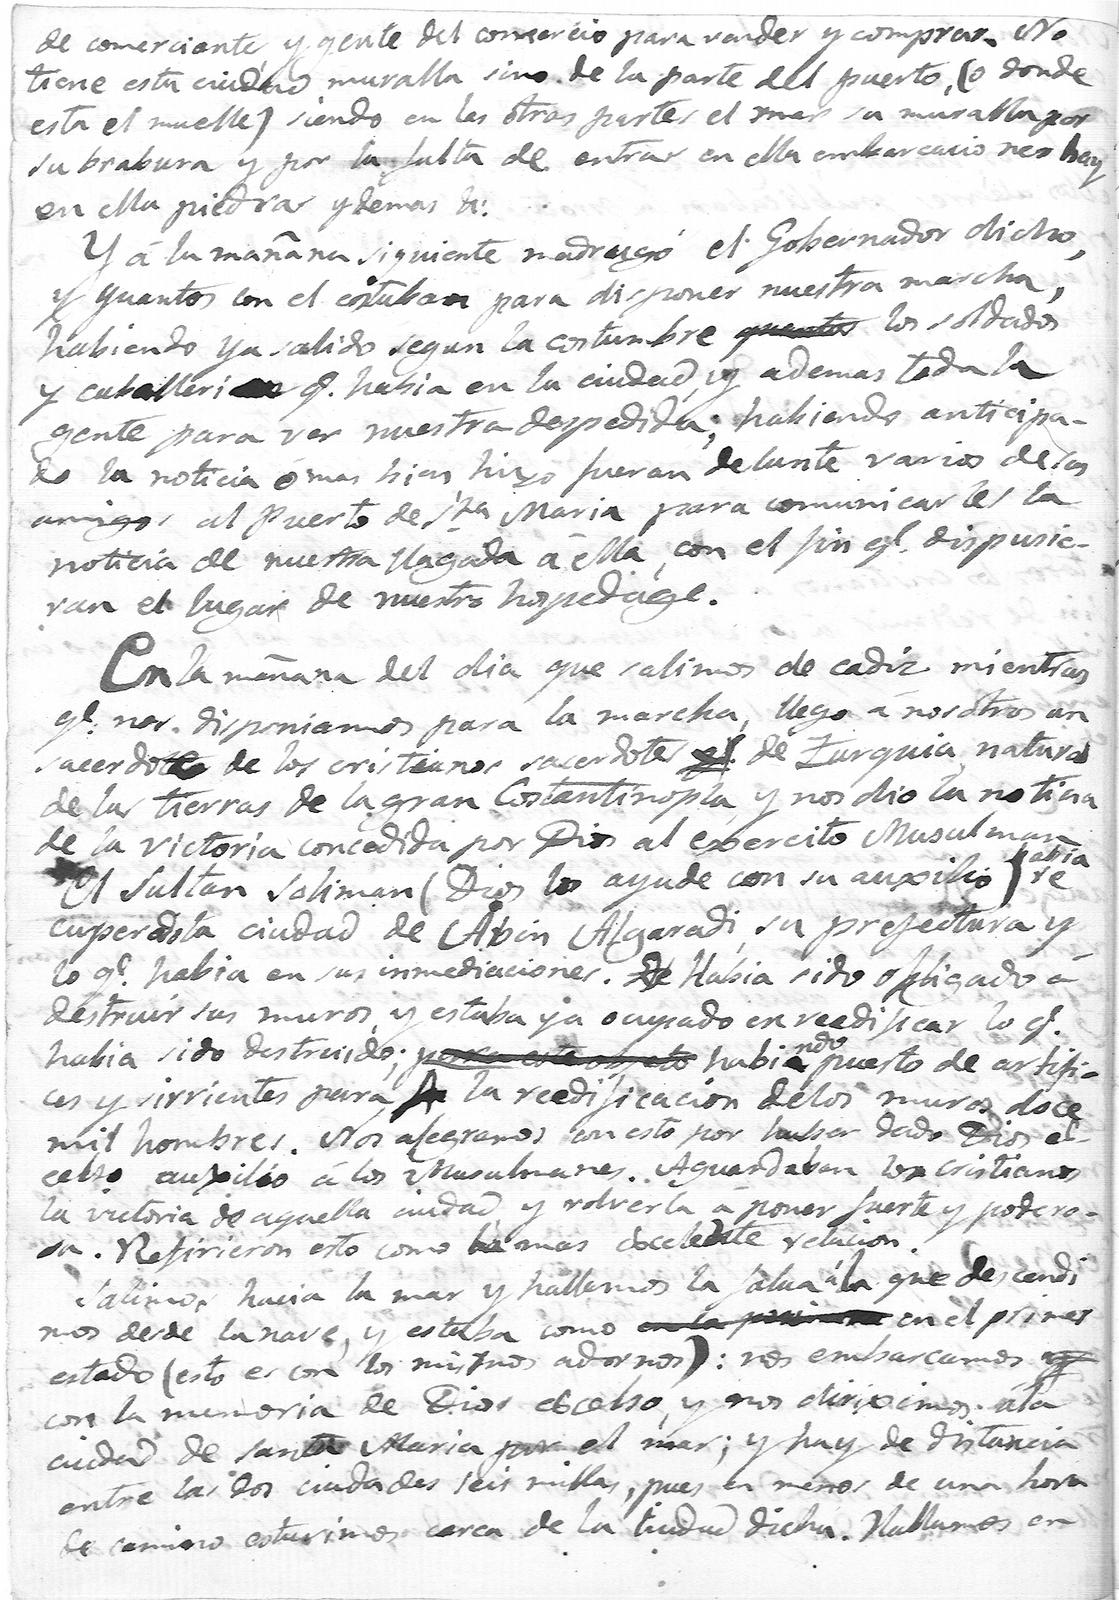 de comerciante, y gente del comercio para vender y comprar. No
tiene esta ciudad muralla sino de la parte del puerto, (o donde
esta el muelle) siendo en las otras partes el mar su muralla por
su brabura y por la falta de entrar en ella embarcaciones hay
en ella piedras y demas &:
Y á la mañana siguiente madrugó el Gobernador dicho,
y quantos con el estaban para disponer nuestra marcha,
habiendo ya salido segun la costumbre quantos los soldados
y caballeri q.e habia en la ciudad, y ademas toda la
gente para ver nuestra despedida; habiendo anticipa-
do la noticia ó mas bien hizo fueran delante varios de los
amigos al Puerto de S.ta Maria para comunicarles la
noticia de nuestra llegada á ella, con el fin q.e dispusie-
ran el lugar de nuestro hospedage.
En la mañana del dia que salimos de cadiz mientras
q.e nos disponiamos para la marcha, llego á nosotros un
sacerdote de los cristianos sacerdotes de Turquia, natural
de las tierras de la gran Costantinopla, y nos dio la noticia
de la victoria concedida por Dios al exercito Musulman
El Sultan Soliman (Dios lo ayude con su auxilio) abria re
cuperado la ciudad de Abin Algaradi, su prefectura y
lo q.e habia en sus inmediaciones. Habia sido obligado á
destruir sus muros, y estaba ya ocupado en reedificar lo q.e
habia sido destruido; para este objeto habiendo puesto de artifi-
ces y sirvientes para la reedificacion de los muros doce
mil hombres. Nos alegramos con esto por haber dado Dios el-
celso auxilio á los Musulmanes. Aguardaban los cristianos
la victoria de aquella ciudad y volverla á poner fuerte y podero-
sa. Refirieron esto como la mas excelente relacion.
Salimos hacia la mar y hallamos la falua á la que descendi
mos desde la nave, y estaba como en la primera en el primer
estado (esto es con los mismos adornos): nos embarcamos y
con la memoria de Dios excelso, y nos dirixcimos á la
ciudad de santa Maria por el mar; y hay de distancia
entre las dos ciudades seis millas, pues en menos de una hora
de camino estuvimos cerca de la ciudad dicha. Hallamos en